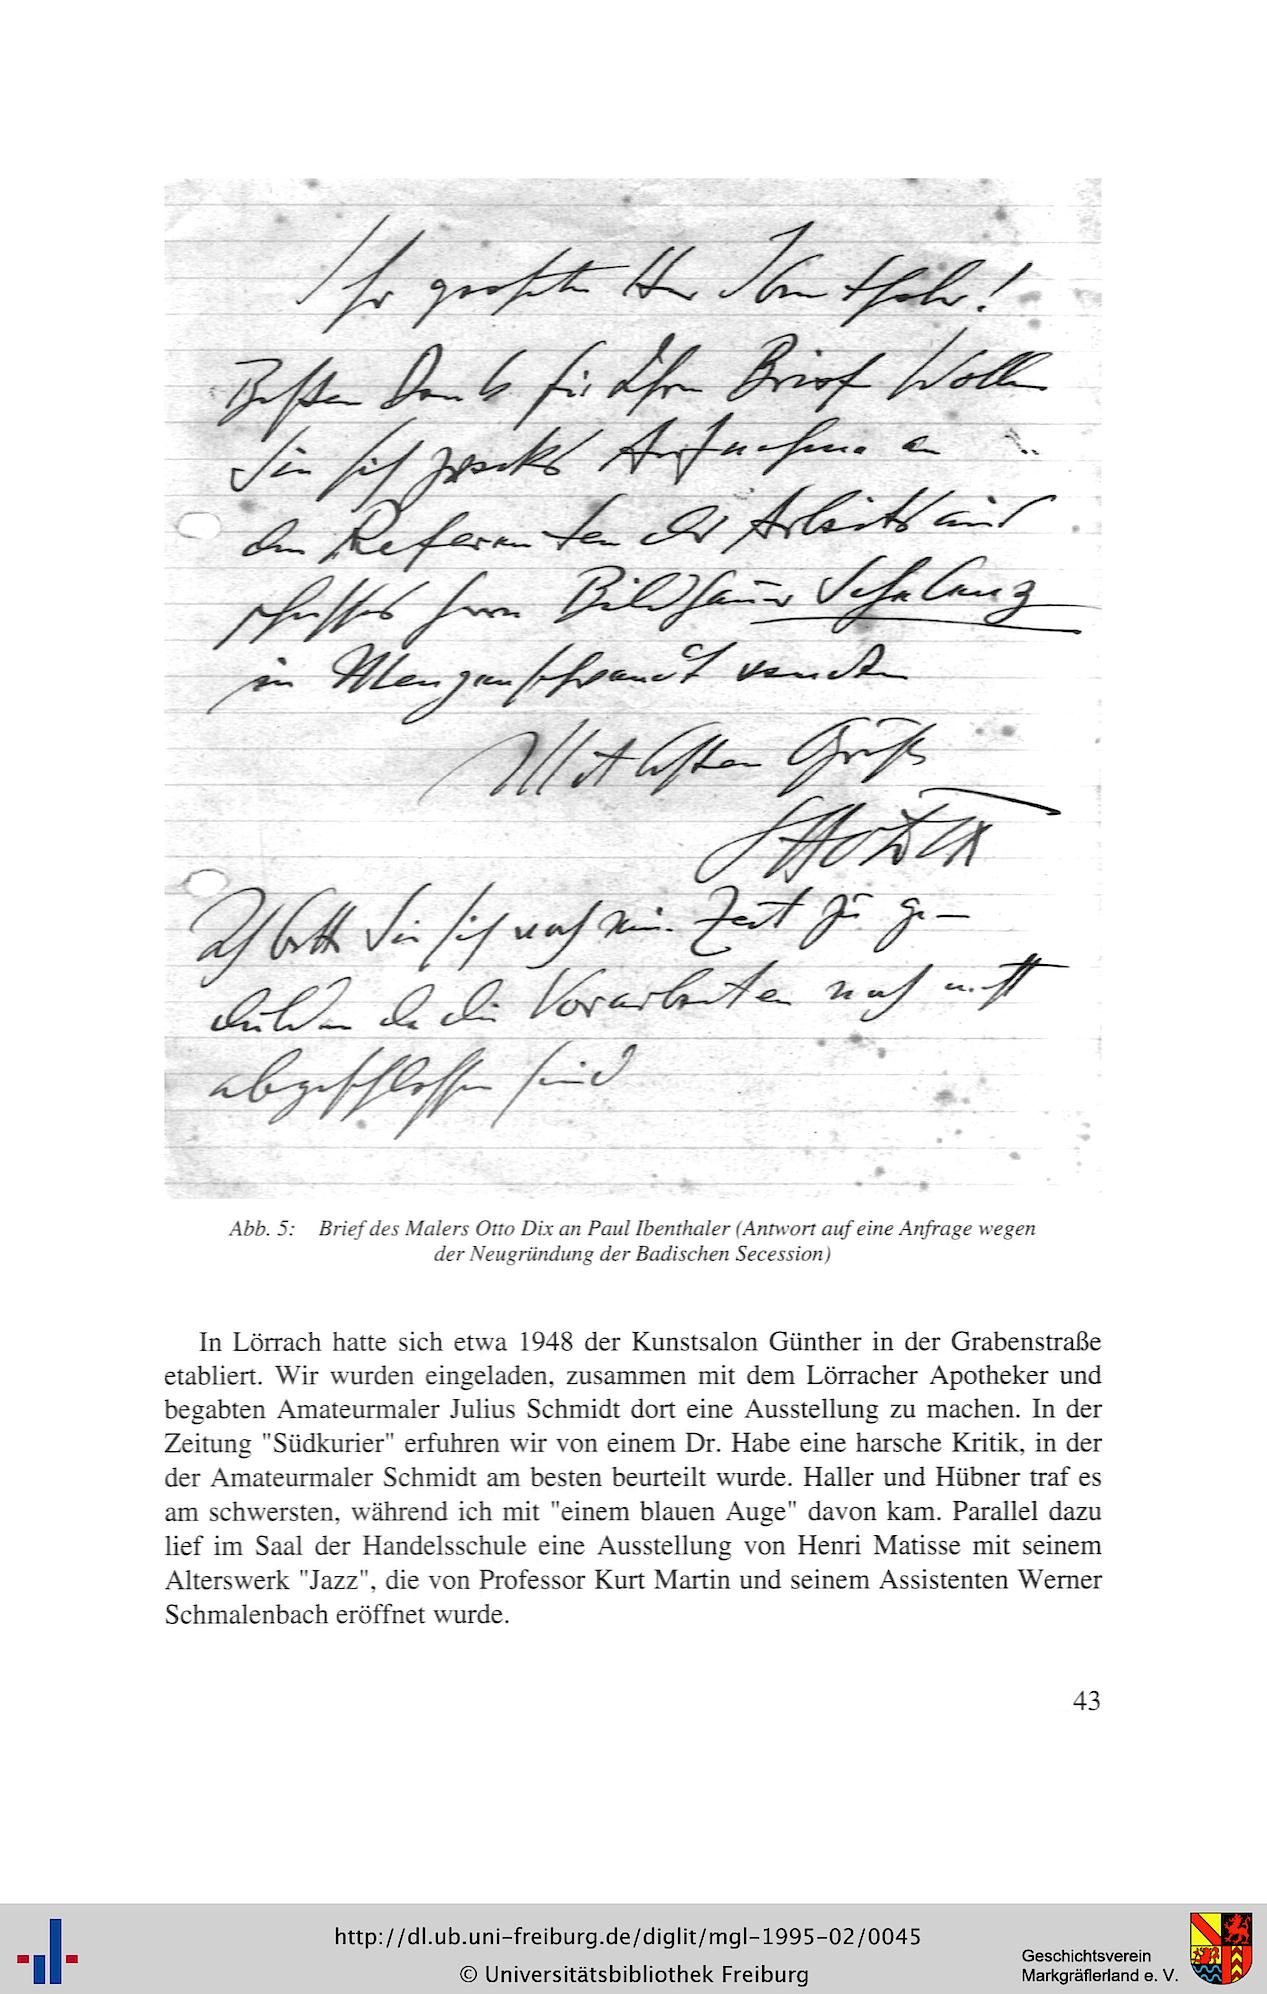 Ihr geehrter Herr Ibenthaler!
Besten Dank für Ihren Brief Wollen
Sie sich zwecks Aufnahme an
den Referenten des Arbeitsaus
schusses Herrn Bildhauer
in Mengenschwand wenden
Mit besten Gruß
Otto Dix
Ich bitte Sie sich noch eine Zeit zu ge-
dulden da die Vorarbeiten noch nicht
abgeschlossen sind
Abb. 5: Brief des Malers Otto Dix an Paul Ibenthaler (Antwort auf eine Anfrage wegen
der Neugründung der Badischen Secession)
In Lörrach hatte sich etwa 1948 der Kunstsalon Günther in der Grabenstraße
etabliert. Wir wurden eingeladen, zusammen mit dem Lörracher Apotheker und
begabten Amateurmaler Julius Schmidt dort eine Ausstellung zu machen. In der
Zeitung "Südkurier" erfuhren wir von einem Dr. Habe eine harsche Kritik, in der
der Amateurmaler Schmidt am besten beurteilt wurde. Haller und Hübner traf es
am schwersten, während ich mit "einem blauen Auge" davon kam. Parallel dazu
lief im Saal der Handelsschule eine Ausstellung von Henri Matisse mit seinem
Alterswerk "Jazz", die von Professor Kurt Martin und seinem Assistenten Werner
Schmalenbach eröffnet wurde.
43
http://dl.ub.uni-freiburg.de/diglit/mgl-1995-02/0045
© Universitätsbibliothek Freiburg
Geschichtsverein
Markgräflerland e. V.